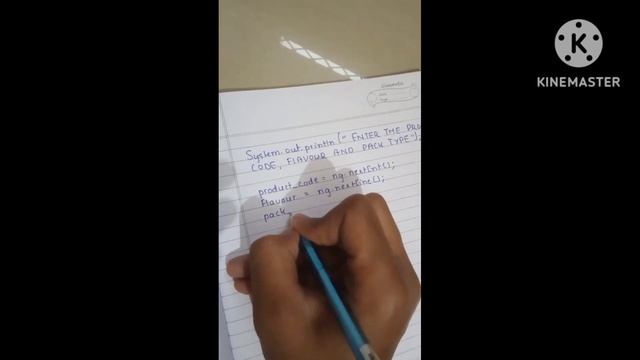 KINEMASTER
System.out.println("ENTER THE PRO
CODE, FLAVOUR AND PACK TYPE");
product_code = ng.nextInt();
Flavour = ng.nextLine();
pack_